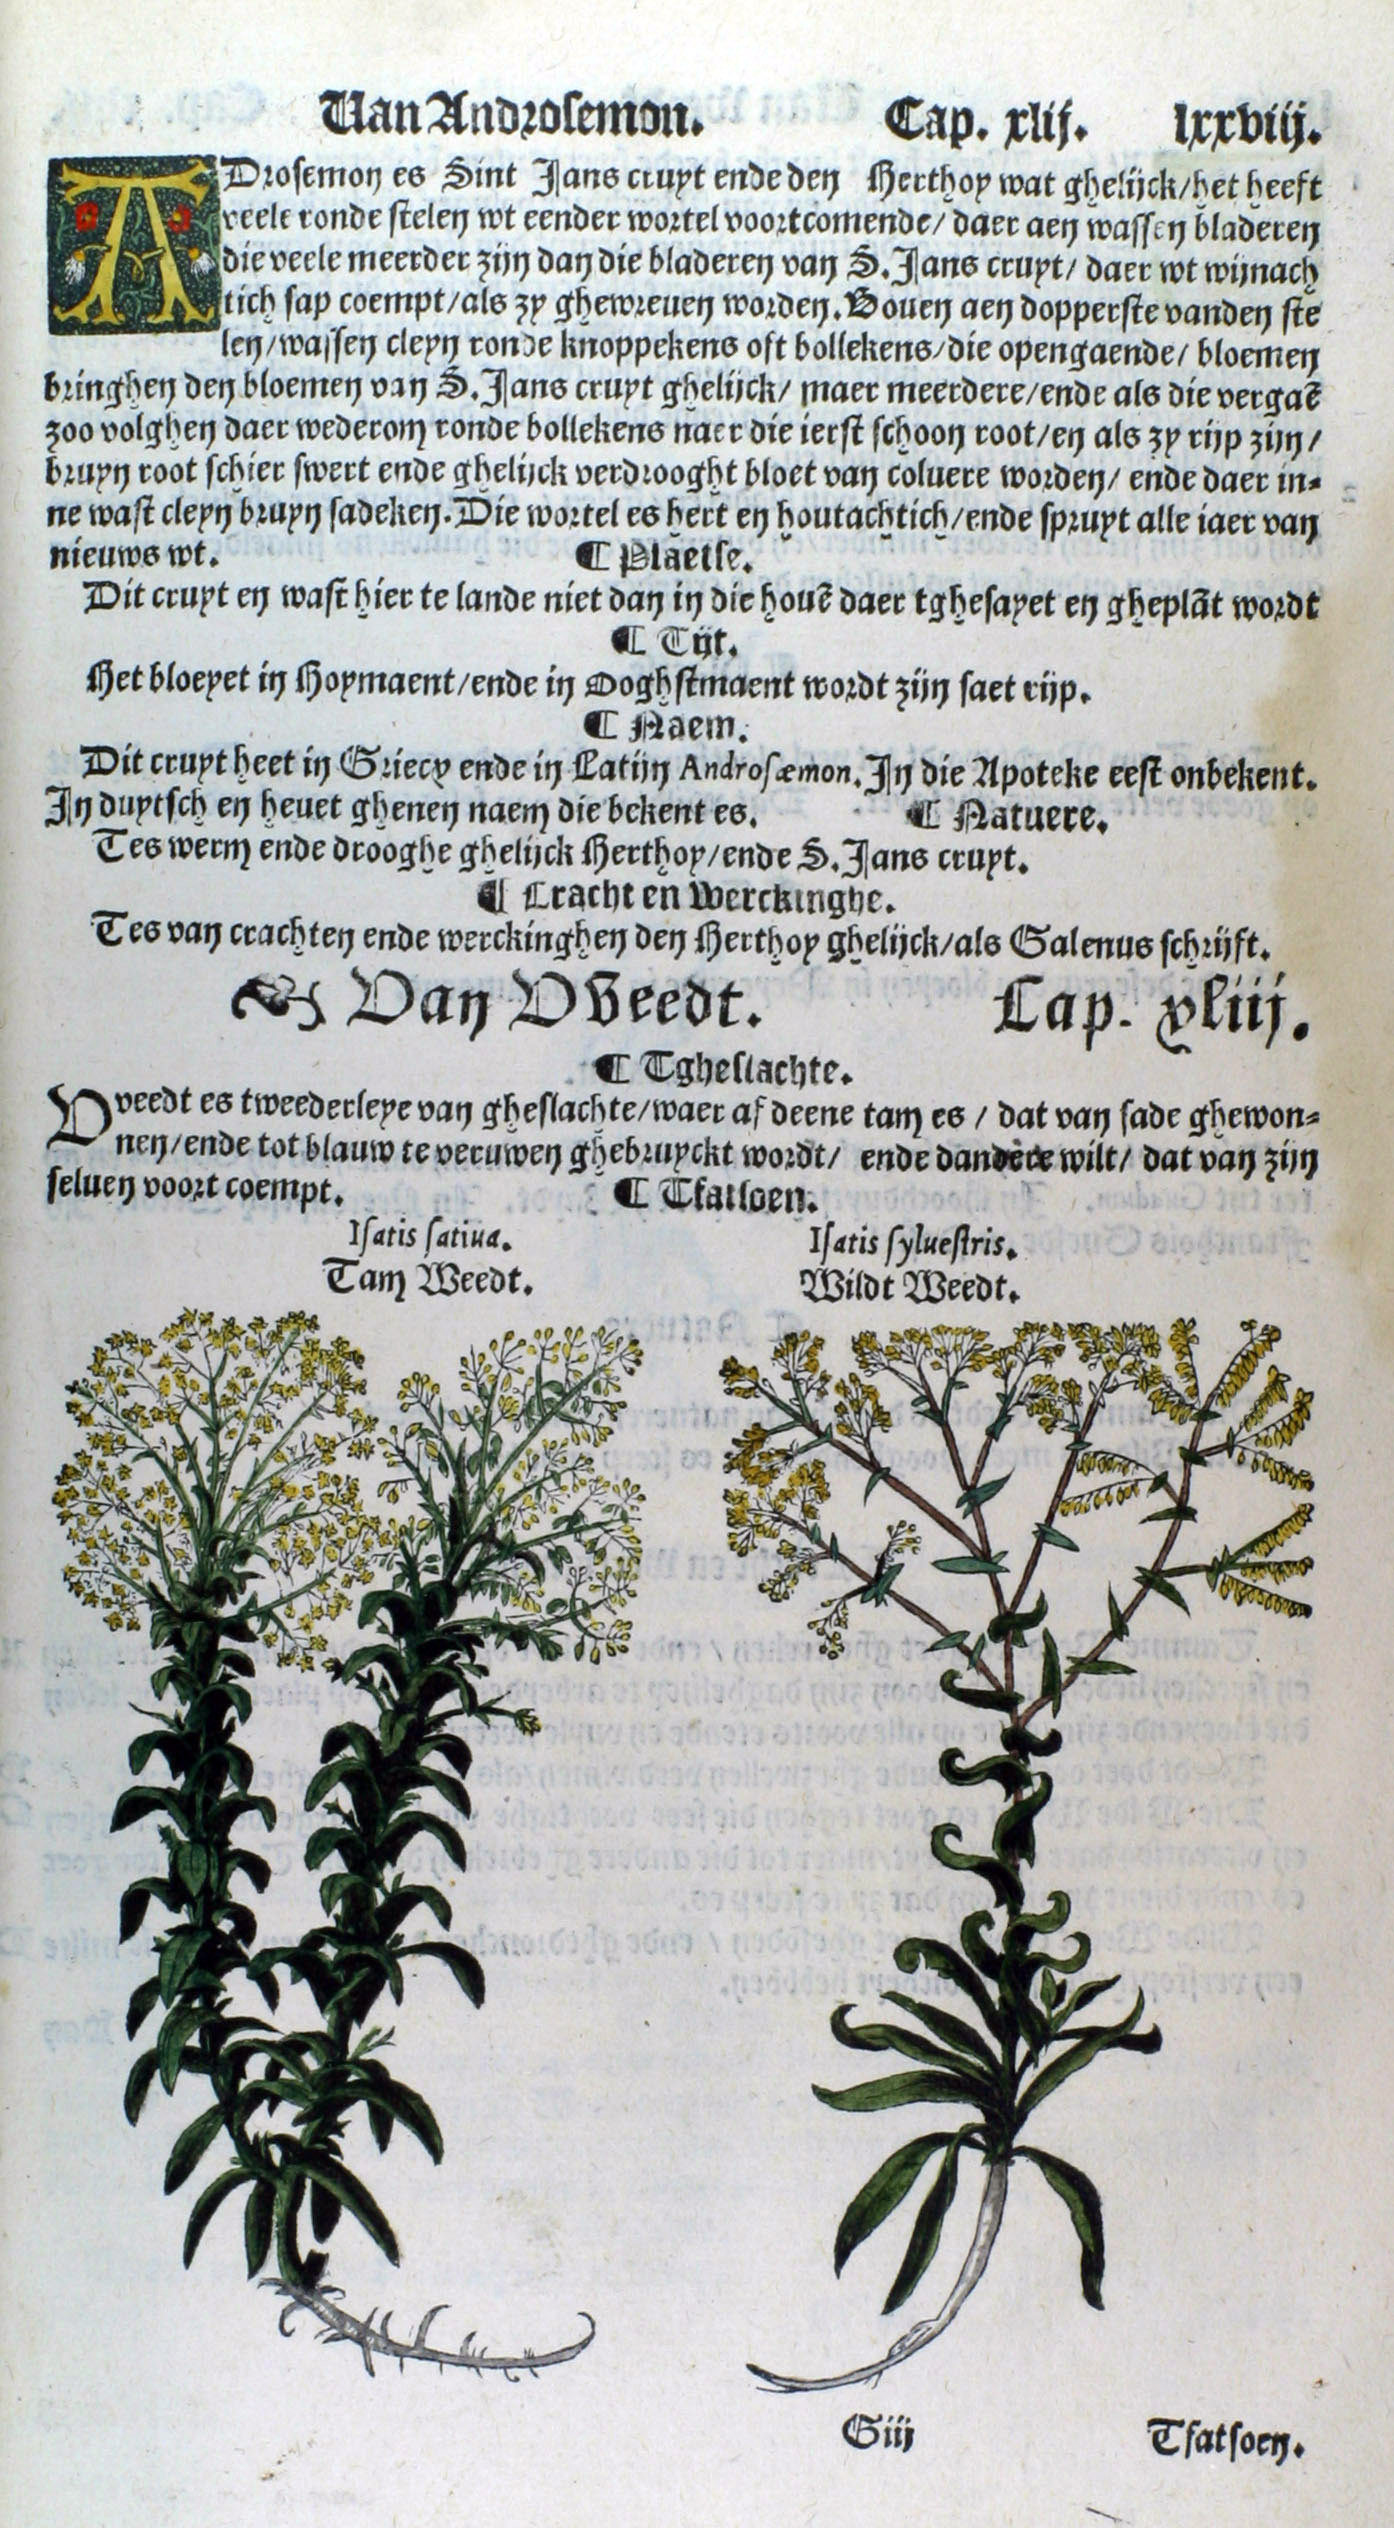 Van Androsemon. Cap. xlij. lxxviij.
ADrosemon es Sint Jans cruyt ende den Herthoy wat ghelijck/het heeft
veele ronde stelen wt eender wortel voortcomende/ daer aen wassen bladeren
die veele meerder zijn dan die bladeren van S. Jans cruyt/ daer wt wijnach
tich sap coempt/als zy ghewreuen worden. Bouen aen dopperste vanden ste
len/wassen cleyn ronde knoppekens oft bollekens/die opengaende/ bloemen
bringhen den bloemen van S. Jans cruyt ghelijck/ maer meerdere/ende als die vergaẽ
zoo volghen daer wederom ronde bollekens naer die ierst schoon root/en als zy rijp zijn/
bruyn root schier swert ende ghelijck verdrooght bloet van coluere worden/ ende daer in=
ne wast cleyn bruyn sadeken. Die wortel es hert en houtachtich/ende spruyt alle iaer van
nieuws wt. ¶ Plaetse.
Dit cruyt en wast hier te lande niet dan in die houẽ daer tghesayet en gheplãt wordt
¶ Tijt.
Het bloeyet in Hoymaent/ende in Ooghstmaent wordt zijn saet rijp.
¶ Naem.
Dit cruyt heet in Griecx ende in Latijn Androsæmon. In die Apoteke eest onbekent.
In duytsch en heuet ghenen naem die bekent es. ¶ Natuere.
Tes werm ende drooghe ghelijck Herthoy/ende S. Jans cruyt.
¶ Cracht en Werckinghe.
Tes van crachten ende werckinghen den Herthoy ghelijck/als Galenus schrijft.
Van VVeedt. Cap. xliij.
¶ Tgheslachte.
VVeedt es tweederleye van gheslachte/waer af deene tam es / dat van sade ghewon=
nen/ende tot blauw te veruwen ghebruyckt wordt/ ende dandere wilt/ dat van zijn
seluen voort coempt. ¶ Tfatsoen.
Isatis satiua. Isatis syluestris.
Tam Weedt. Wildt Weedt.
Giij Tfatsoen.